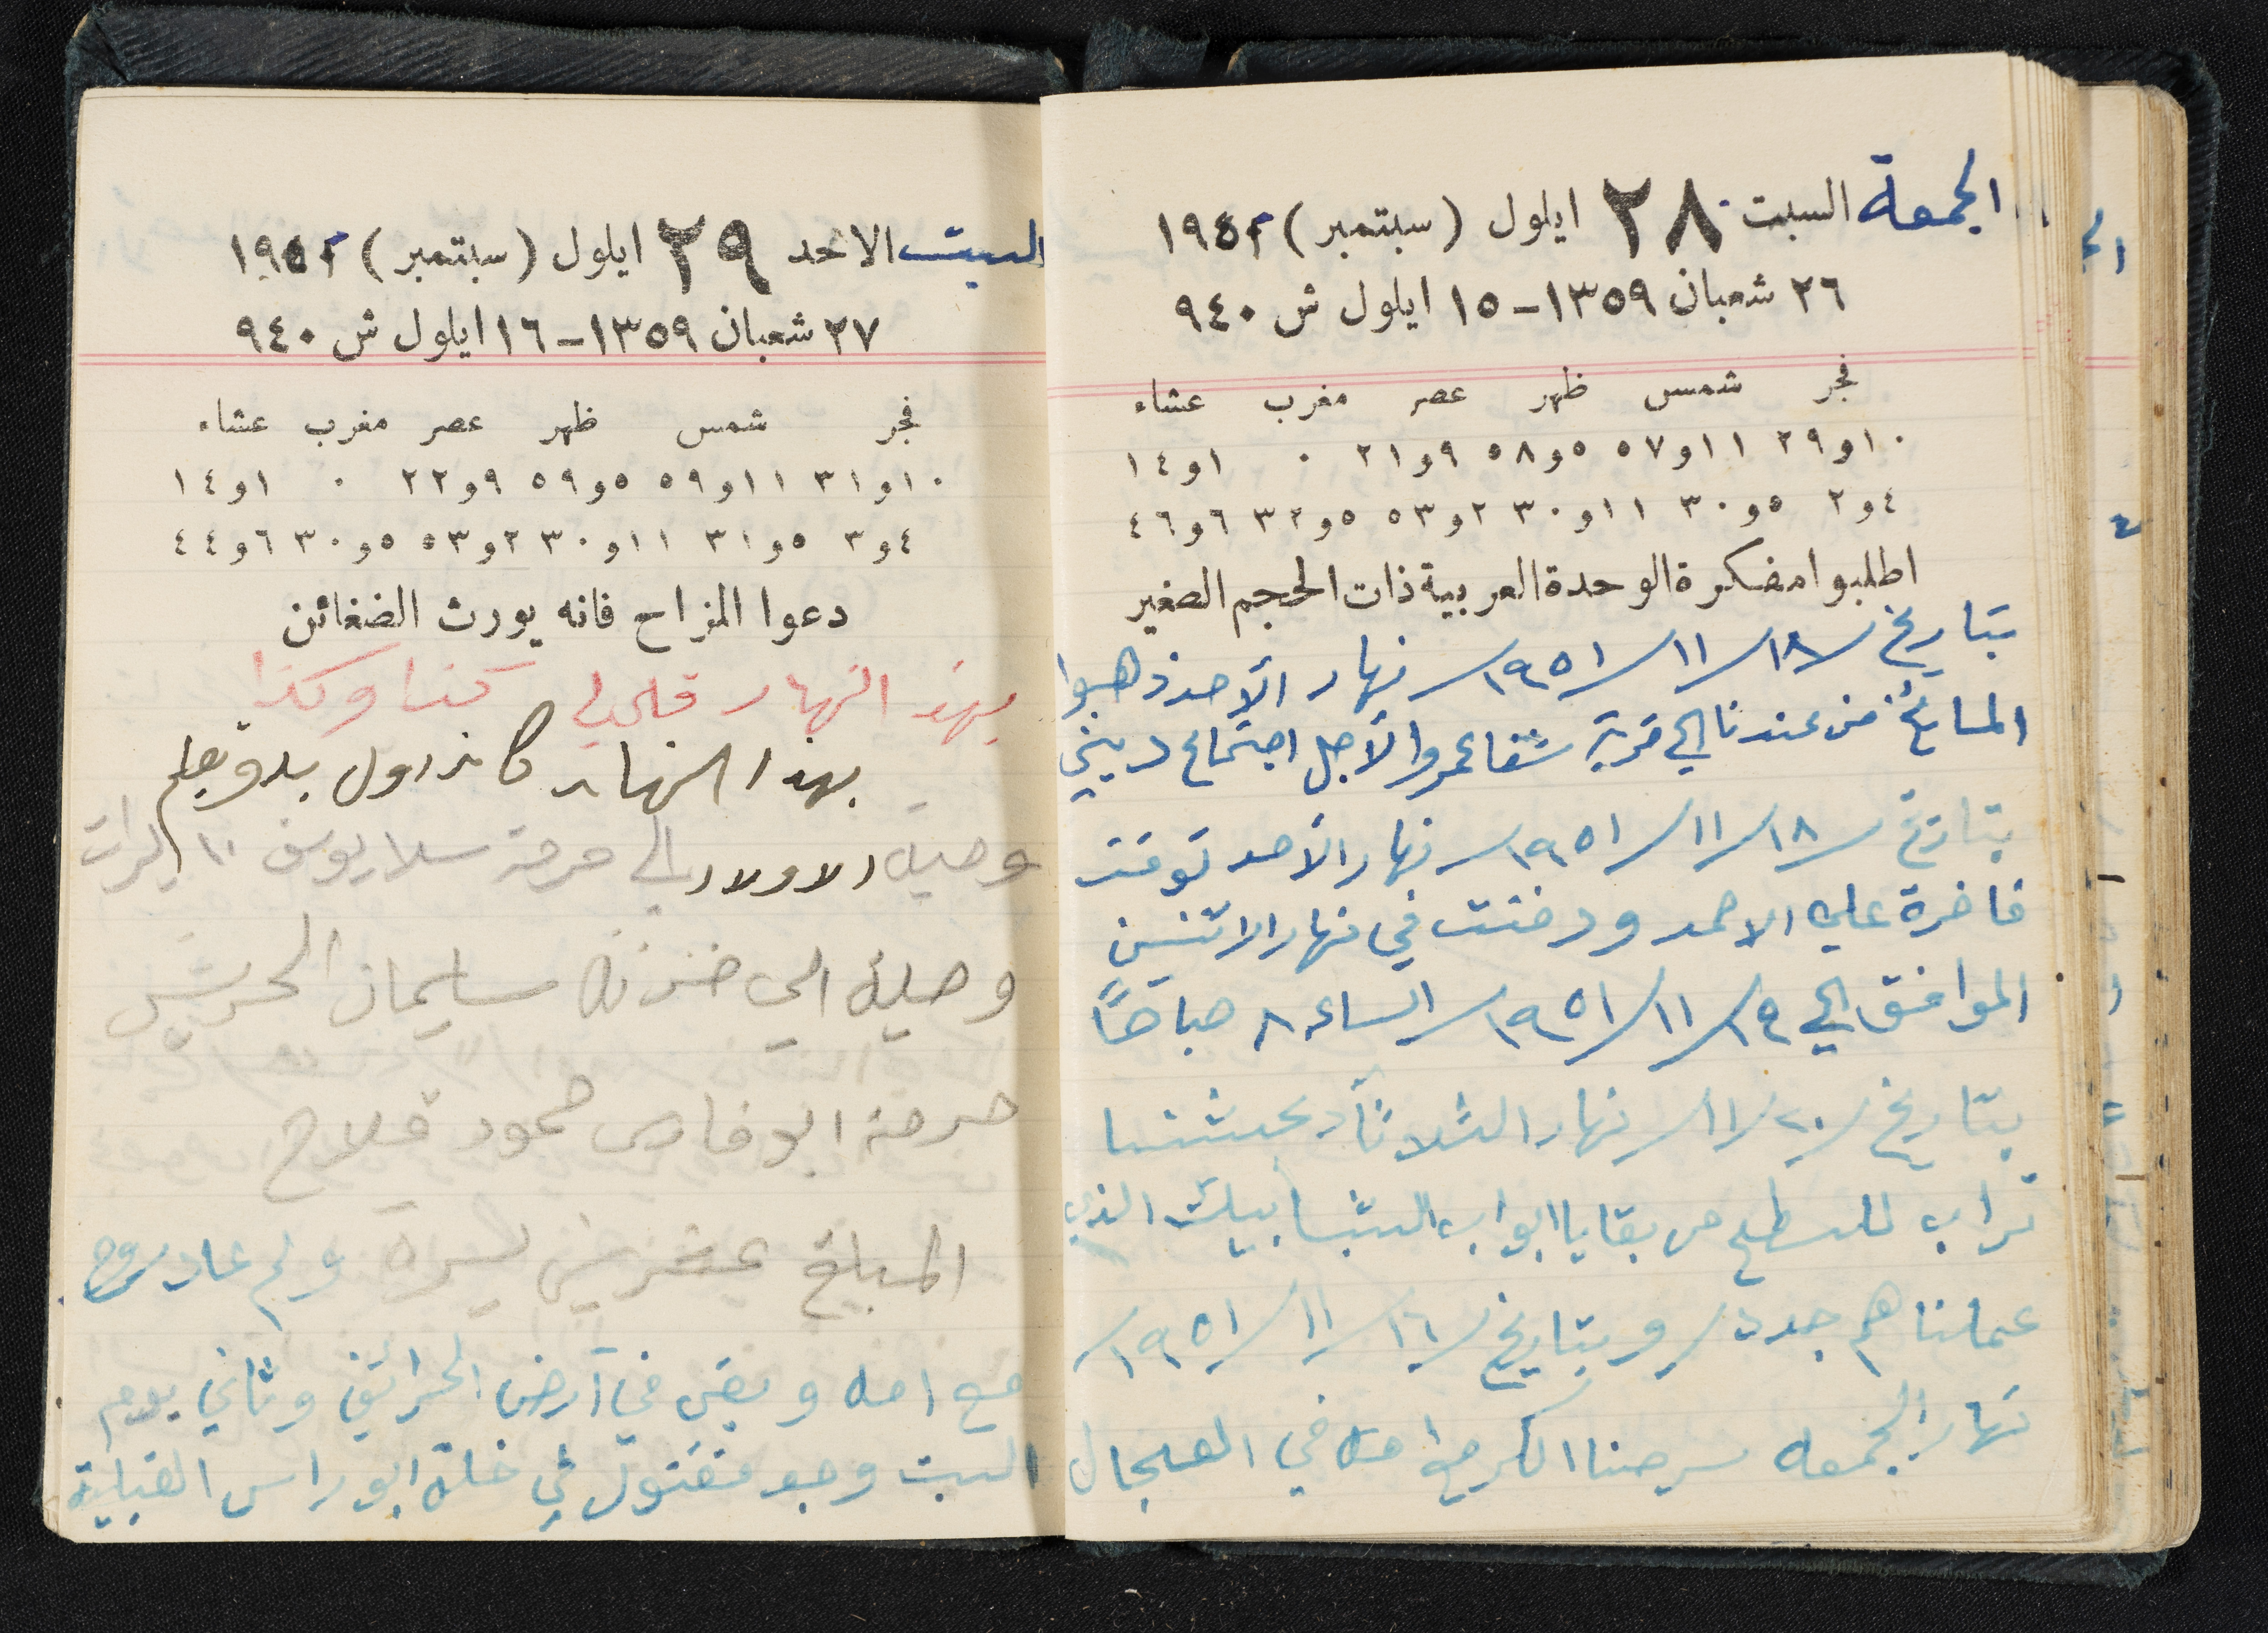 الجمعة السبت ٢٨ ايلول (سبتمبر) ١٩٥١
٢٦ شعبان ١٣٥٩ - ١٥ ايلول ش ٩٤٠
فجر شمس ظهر عصر مغرب عشاء
١٠و٢٩ ١١و٥٧ ٥و٥٨ ٩و٢١ ٠ ١و١٤
٤و٢ ٥و٣٠ ١١و٣٠ ٢و٥٣ ٥و٣٢ ٦و٤٦
اطلبوا مفكرة الوحدة العربية ذات الحجم الصغير
بتاريخ ١٨/١١/١٩٥١ نهار الأحد ذهبوا
المشايخ من عندنا الي قرية شفاعمرو الأجل اجتماع ديني
بتاريخ ١٨/١١/١٩٥١ نهار الأحد توفت
فاخرة علي الاحمد ودفنت في نهار الاثنين
الموافق الي ١٩/١١/١٩٥١ الساعه ٨ صباحاً
بتاريخ ٢٠/١١ نهار الثلاثاء
تراب للسطح من بقايا ابواب الشبابيك الذي
عملناهم جدد/ وبتاريخ ١٦/١١/١٩٥١
نهار الجمعه سرحنا الكر مع امه في العجال
السبت الاحد ٢٩ ايلول (سبتمبر) ١٩٥١
٢٧ شعبان ١٣٥٩ - ١٦ ايلول ش ٩٤٠
فجر شمس ظهر عصر مغرب عشاء
١٠و٣١ ١١و٥٩ ٥و٥٩ ٩و٢٢ ٠ ١و١٤
٤و٣ ٥و٣١ ١١و٣٠ ٢و٥٣ ٥و٣٠ ٦و٤٤
دعوا المزاح فانه يورث الضغائن
بهذ النهار كذا وكذا
بهذا النهار
وصية الاولاد الي حرمة يوسف ١٠ ليرات
وصية الي خزنة سليمان الحرش
حرمة ابو فارس حمود فلاح
المبلغ عشرين ليرة ولم عاد روح
مع امه وبقى في أرض الحرائق وثاني يوم
السبت وجد مقتول في خلة ابو راس القبلية